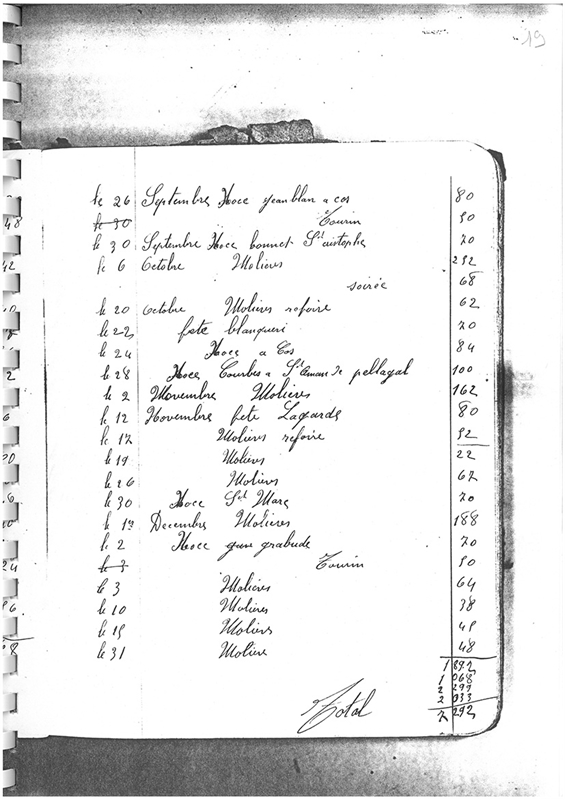 19
le 26 Septembre Noce jean blan a cos 80
le 30 Tourin 50
le 30 Septembre Noce bonnet St cristophe 70
le 6 Octobre Molières 252
soirée 68
le 20 Octobre Molières refoire 62
le 22 fete blanqueri 70
le 24 Noce a Cos 84
le 28 Noce Courbes a St Amans de pellagal 100
le 2 Novembre Molières 162
le 12 Novembre fete Lagarde 80
le 17 Molières refoire 52
le 19 Molières 22
le 26 Molières 67
le 30 Noce St Marc 70
le 1er Decembre Molières 188
le 2 Noce grabude 70
le 3 Tourin 50
le 3 Molières 64
le 10 Molières 38
le 15 Molières 45
le 31 Molière 48
1 892
1 068
2 299
2 033
Total 7 292